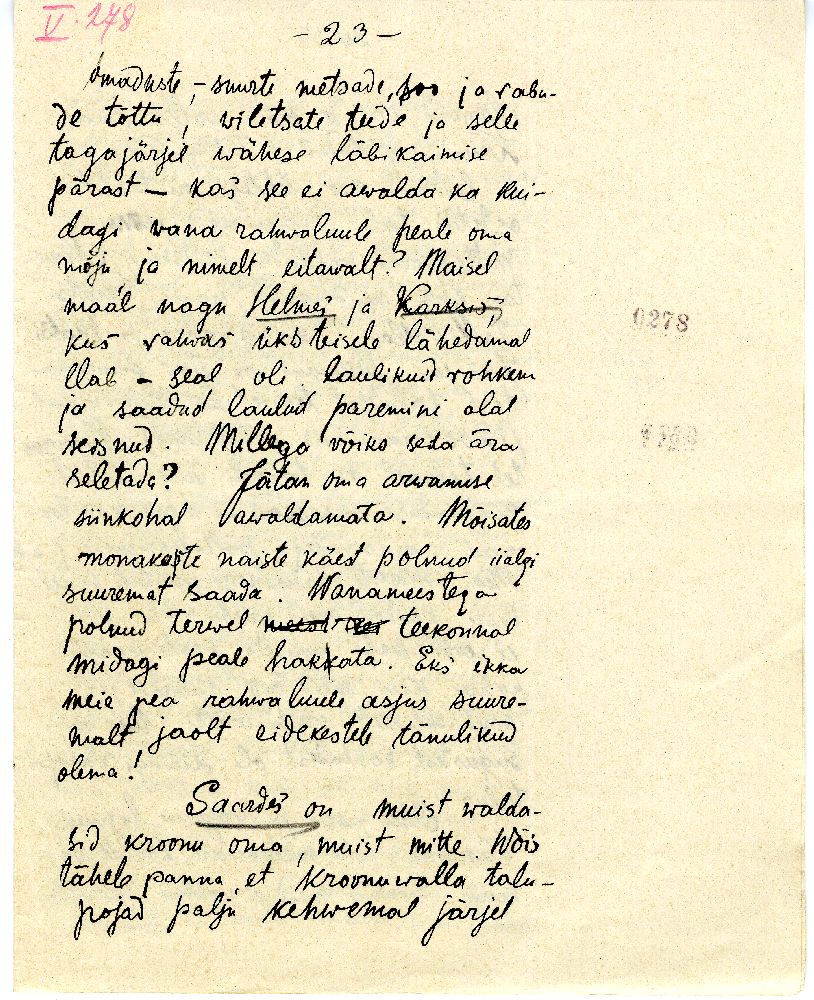 V. 278
- 23 -
omaduste, - suurte metsade, soo ja rabu-
de tõttu, wiletsate teede ja selle
tagajärjel wähese läbikäimise
pärast - kas see ei awalda ka kui-
dagi wana rahwaluule peale oma
mõju ja nimelt eitawalt? Maisel
maal nagu Helmes ja Karksis,
kus rahvas üksteisele lähedamal
elab - seal oli laulikuid rohkem
ja saadud laulud paremini alal
seisnud. Millega võiks seda ära
seletada? Jätan oma arwamise
siinkohal awaldamata. Mõisates
moonakate naiste käest polnud iialgi
suuremat saada. Wanameestega
polnud terwel teekonnal
midagi peale hakata. Eks ikka
meie pea rahwaluule asjus suure-
malt jaolt eidekestele tänulikud
olema!
Saardes on muist walda-
sid kroonu oma, muist mitte. Wõis
tähele panna, et kroonuwalla talu-
pojad palju kehwemal järjel
0278